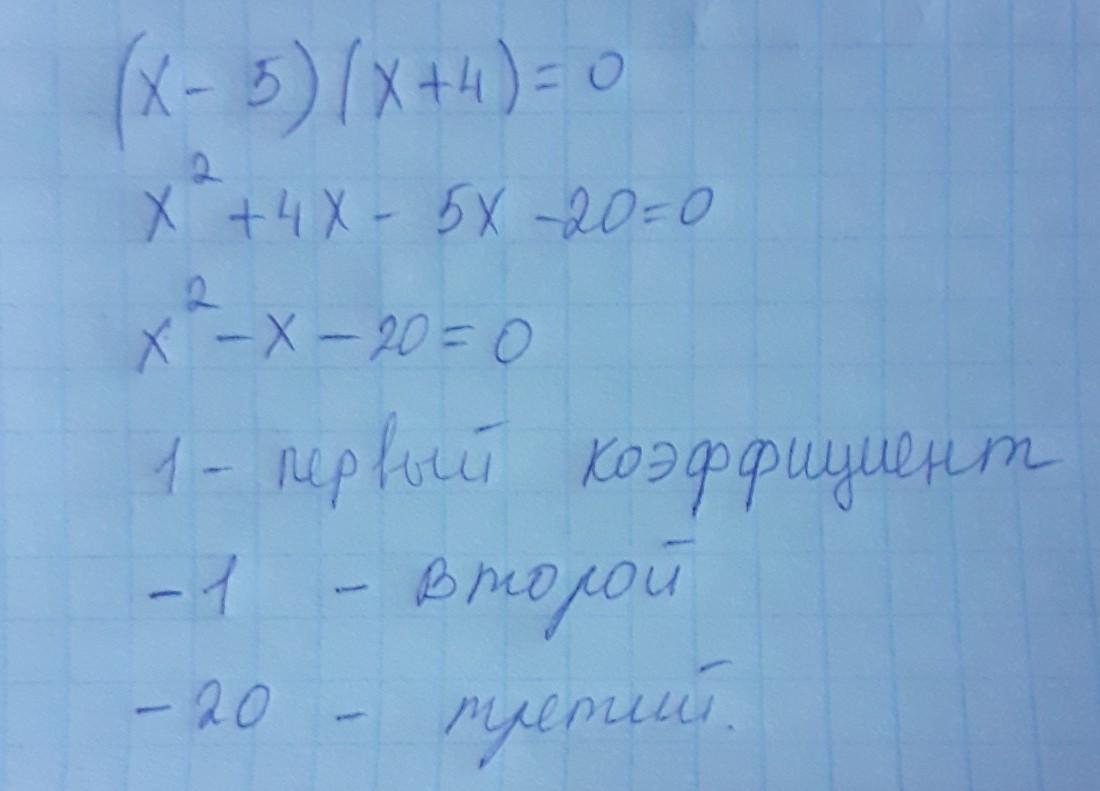 (x - 5)(x + 4) = 0
x² + 4x - 5x - 20 = 0
x² - x - 20 = 0
1 - первый коэффициент
-1 - второй
-20 - третий.